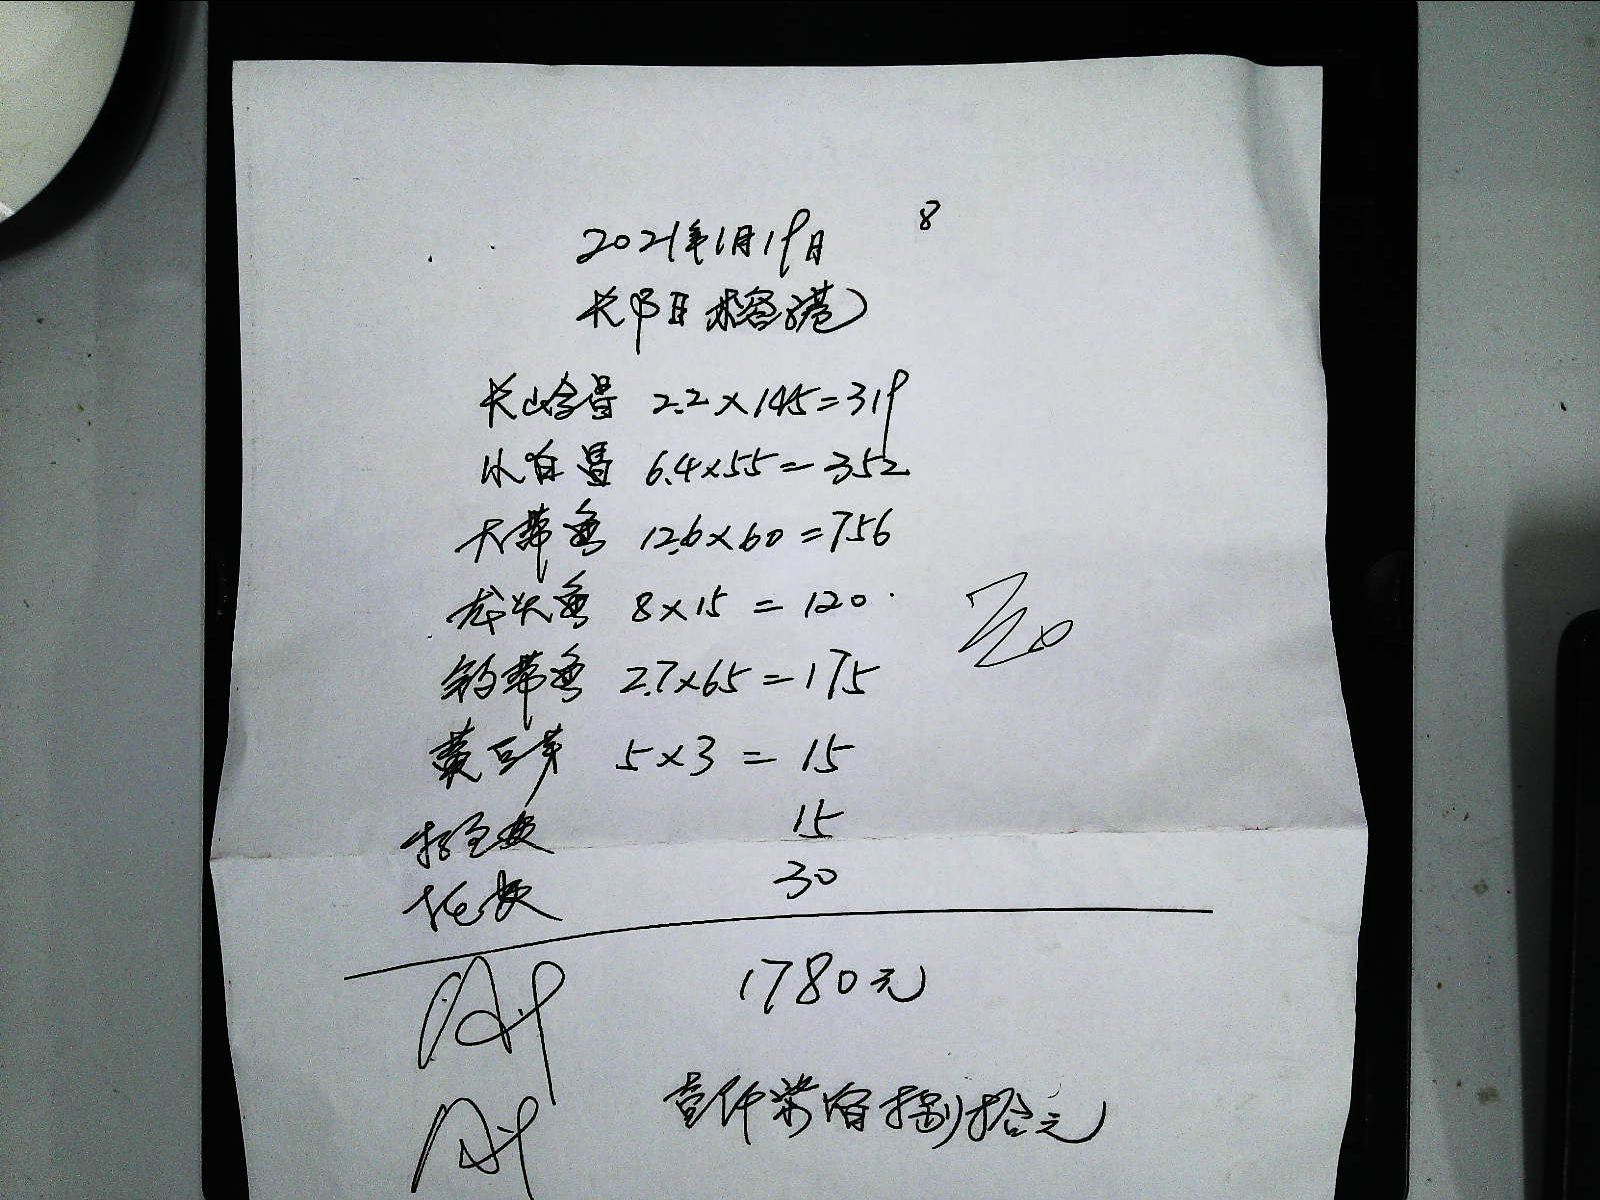 8
2021年1月19日
长 日 榕港
长山 2.2×145=319
小白 6.4×55=352
大带鱼 12.6×60=756
龙头鱼 8×15=120
钓带鱼 2.7×65=175
黄豆芽 5×3=15
打包费 15
托费 30
1780元
壹仟柒佰捌拾元